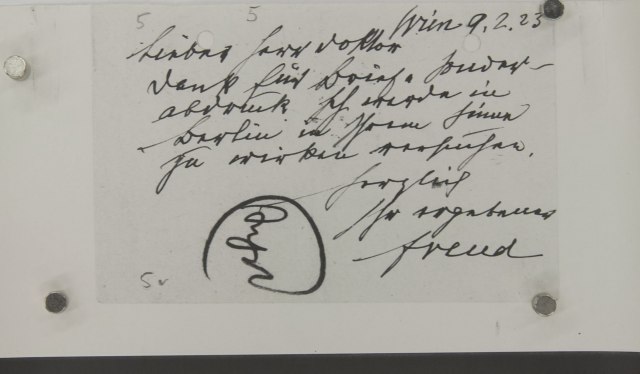 5 5 Wien 9.2.23
Lieber Herr Doktor
Dank für Brief u Sonder-
abdruck Ich werde in
Berlin in Ihrem Sinne
zu wirken versuchen.
Herzlich
Ihr ergebener
Freud
5v